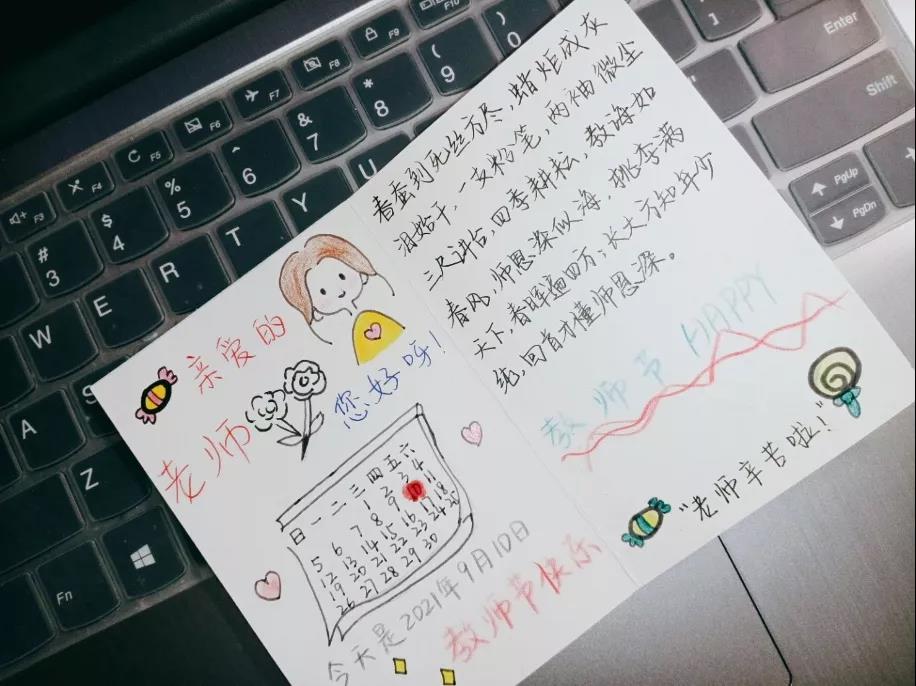 亲爱的
老师
您好呀!
日 一 二 三 四 五 六
1 2 3 4
5 6 7 8 9 10 11
12 13 14 15 16 17 18
19 20 21 22 23 24 25
26 27 28 29 30
今天是2021年9月10日
教师节快乐
春蚕到死丝方尽,蜡炬成灰
泪始干,一支粉笔,两袖微尘
三尺讲台,四季耕耘,教诲如
春风,师恩深似海,桃李满
天下,春晖遍四方;长大方知年少
纯,回首才懂师恩深。
教师节 HAPPY
"老师辛苦啦!"
F3 F4 F5 F6 F7 F8 F9 F10
# 3 $ 4 % 5 ^ 6 & 7 * 8 ( 9 ) 0
W E R T Y U
] Enter
A
Shift
Z
PgUp
Fn
PgDn